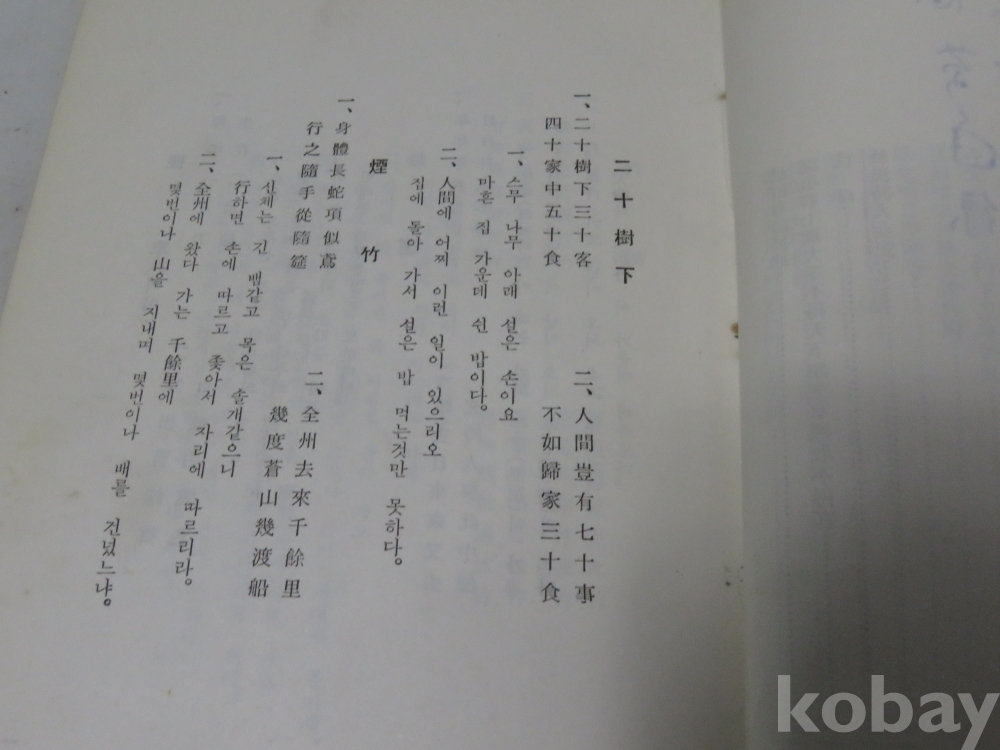 二十樹下
一、二十樹下三十客
四十家中五十食
二、人間豈有七十事
不如歸家三十食
一、스무 나무 아래 설은 손이요
마흔 집 가운데 쉰 밥이다。
二、人間에 어찌 이런 일이 있으리오
집에 돌아 가서 설은 밥 먹는것만 못하다。
煙竹
一、身體長蛇項似鳶
行之隨手從隨筵
二、全州去來千餘里
幾度蒼山幾渡船
一、신체는 긴 뱀같고 목은 솔개같으니
行하면 손에 따르고 좇아서 자리에 따르리라。
二、全州에 왔다 가는 千餘里에
몇번이나 山을 지내며 몇번이나 배를 건넜느냐。
kobay